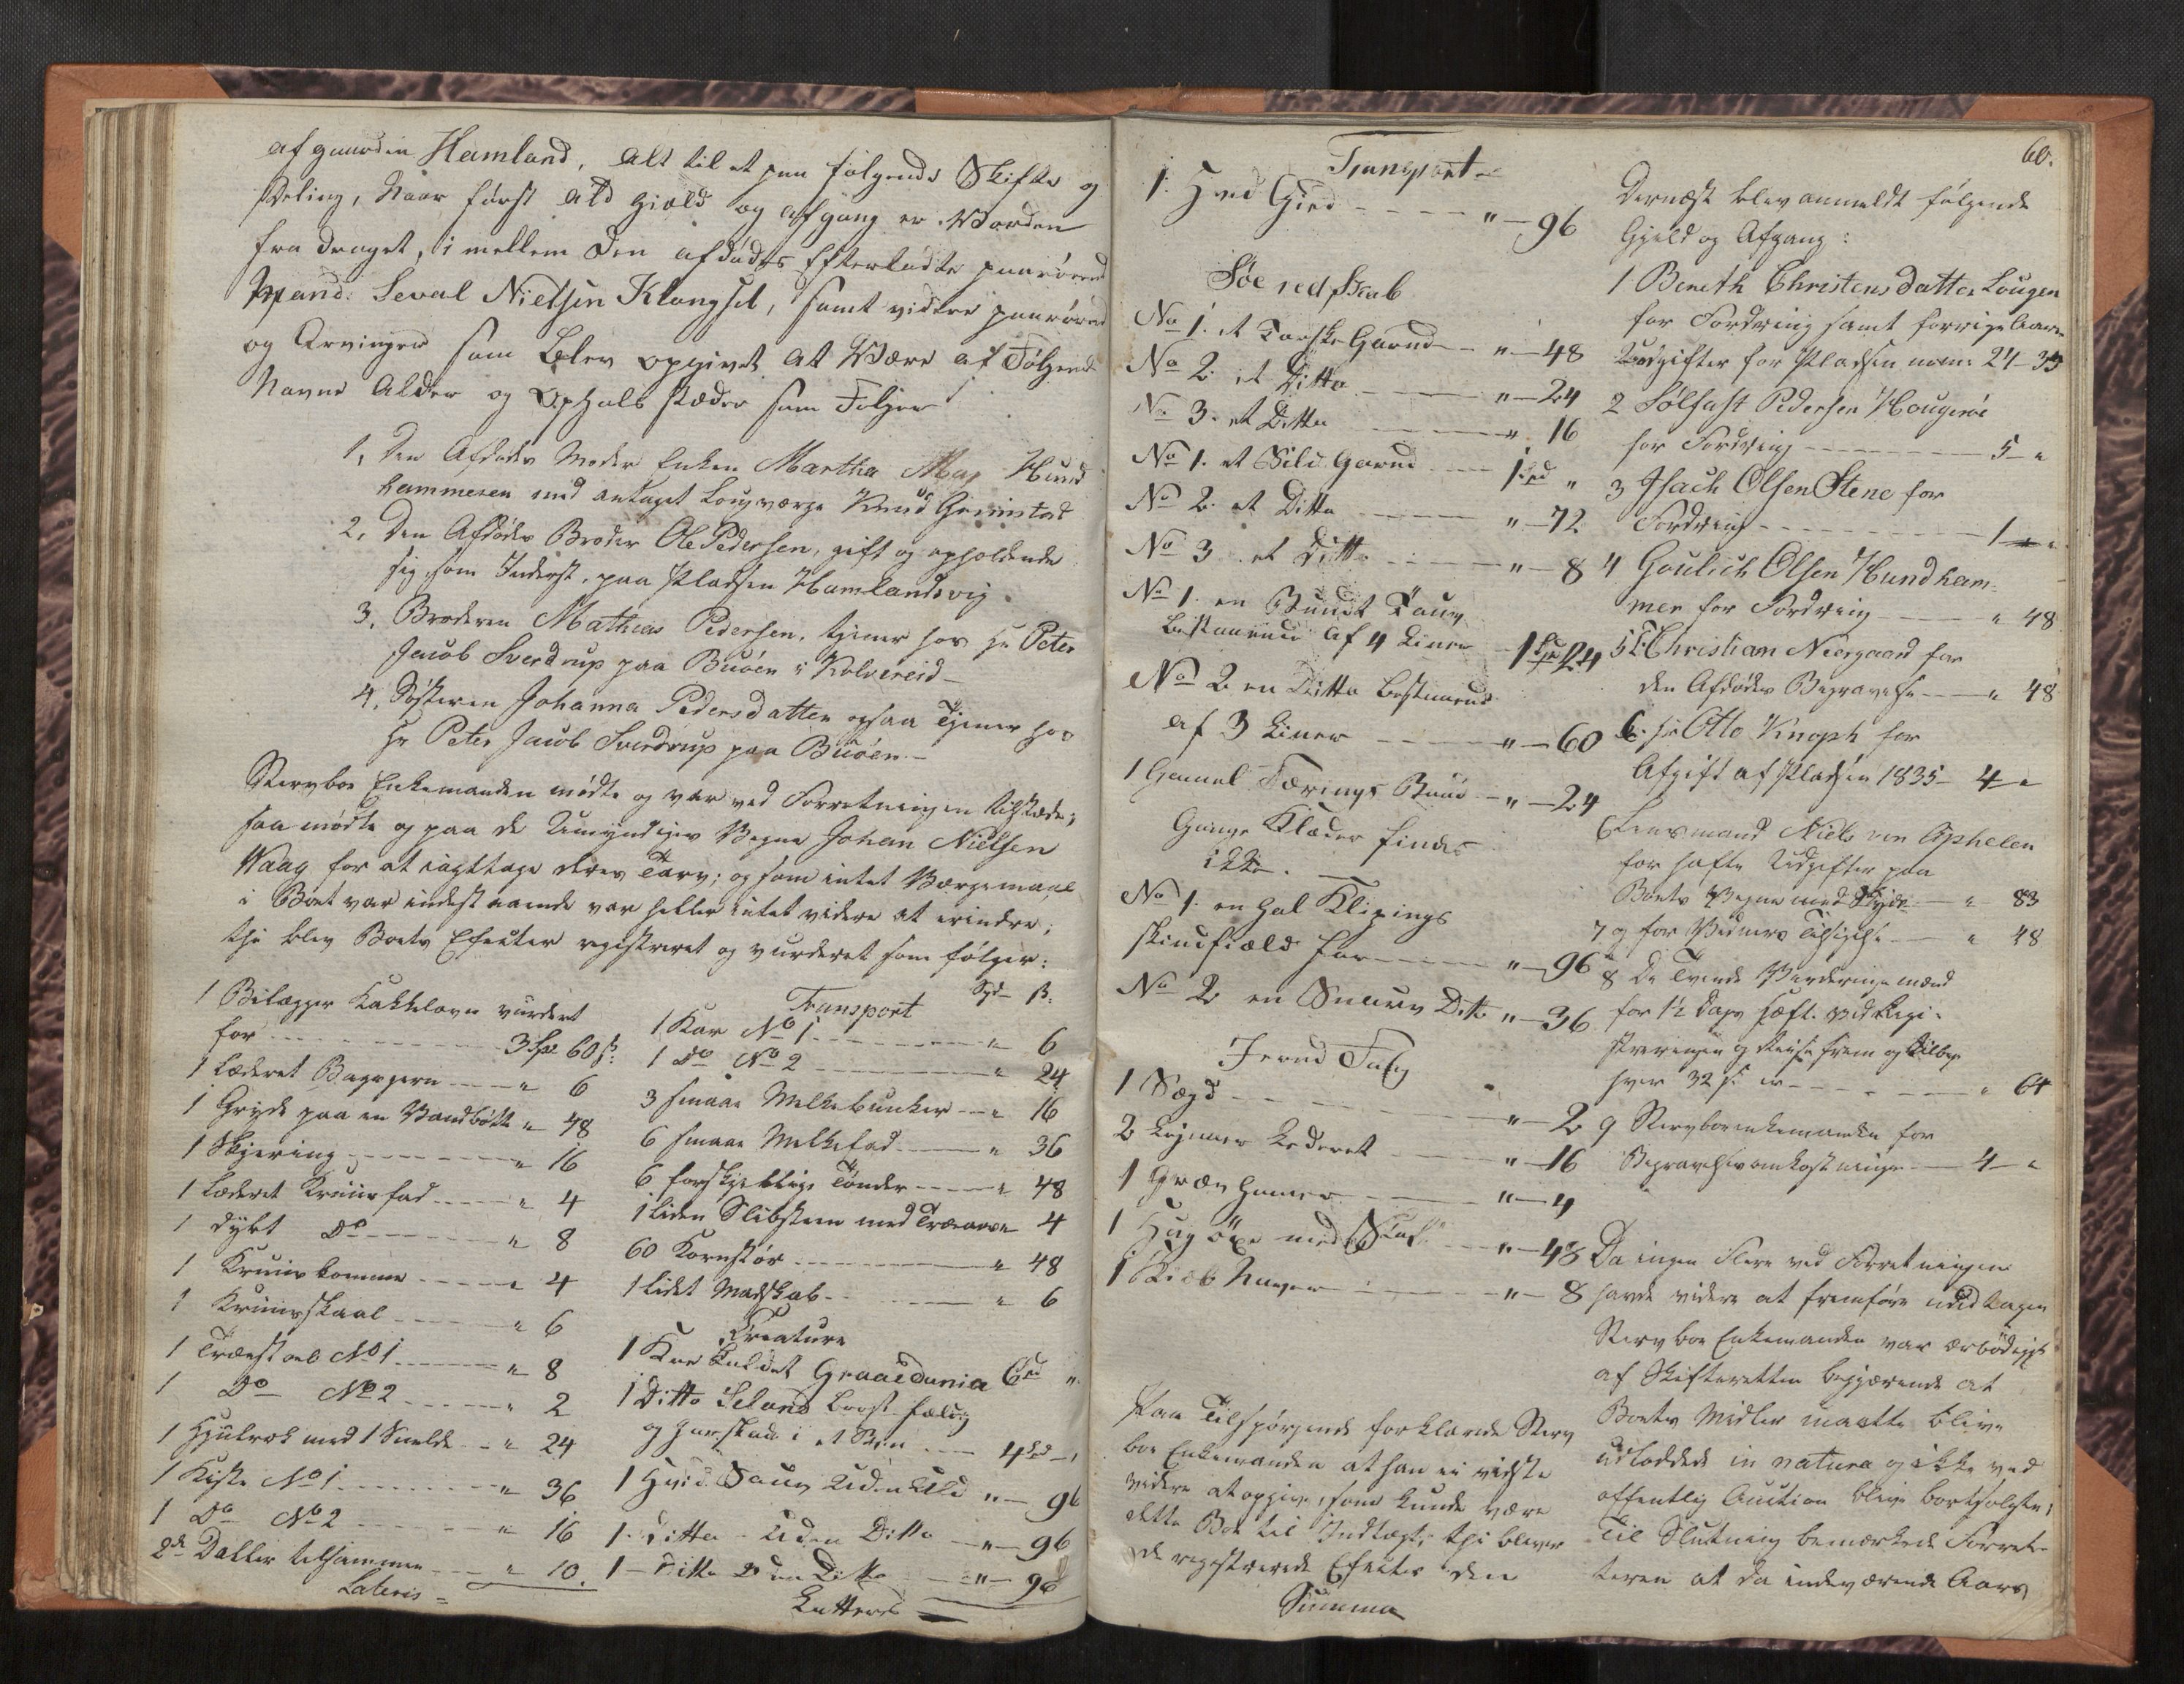 af gaarden Hamland, alt til et paa følgende Skifte og
Deling, naar først ald giæld og afgang er Vorden
fra draget, i mellem Den afdødes Efterladte paarörende
Mand: Seval Nielsen Klangsel, samt videre paarörende
og Arvinger som Blev opgivet at Være af Følgende
Navne Alder og Ophols stæder som Følger
1, Den Afdødes Moder Enken Martha Hund
hammeren med antaget Lougværge Knud Grimstad
2, Den Afdødes Broder Ole Pedersen, gift og opholdende
sig som Inderst, paa Pladsen Hamlandsvig.
3, Broderen Mathias Pedersen, tjener hos Hr Peter
Jacob Sverdrup paa Buöen i Kolvereid –
4, Søsteren Johanna Pedersdatter ogsaa Tjener hos
Hr Peter Jacob Sverdrup paa Buöen. –
Stervboe Enkemanden mødte og var ved Forretningen tilstæde;
saa mødte og paa de Umyndiges Vegne Johan Nielsen
Waag for at iagttage deres Tarv; og som intet Værgemaal
i Boet var indestaaende var heller intet videre at erindre;
thi blev Boets Efecter registreret og vurderet som følger:
1 Bilægger Kakkelovn vurdert
for 3 Sp 60 ß
1 Læderet Bagegjern " 6
1 Gryde paa en Vandbøtte " 48
1 Skjering " 16
1 Læderet Kruusfad " 4
1 dybt Do " 8
1 Kruuskomme " 4
1 Kruusskaal " 6
1 Træstoel No 1 " 8
1 Do No 2 " 2
1 Hjulrok med 1 Snelde " 24
1 Kiste No 1 " 36
1 Do No 2 " 16
2de Daller tilsammen " 10.
Lateris =
Transport Spd ß:
1 Kar No 1 " 6
1 Do No 2 " 24
3 smaae Melkebunker " 16
6 smaae Melkefad " 36
6 forskjellige Tönder " 48
1 liden Slibsteen med Træarm 4
60 Kornstör " 48
1 lidet Madskab " 6
Creature
1 Koe Kaldet Graaedunia 6 Spd "
1 Ditto Seland
og har skade i et Been 4 Spd "
1 Hvid Sauv Uden Uld " 96
1. Ditto Uden Ditto " 96
1 – Ditto Uden Ditto " 96
Latteris
Transport –
1. Hvid Gied " 96
Søe redskab
No 1. et Torske Garnd " 48
No 2. et Ditto " 24
No 3. et Ditto " 16
No 1. et Sild Garnd 1 Spd "
No 2. et Ditto " 72
No 3. et Ditto " 8
No 1. en Bundt Taug
bestaaende af 4 Liner 1 Spd 24
No 2 en Ditto bestaaende
af 3 Liner " 60
1 Gamel Færings Baad " 24
Gange Klæder findes
ikke.
No 1. en hal Klipings
skindfæld for " 96
No 2 en Snaue Ditto " 36
Jernd Tøig
1 Sægd " 2
2 Lejmer Lederet " 16
1 Græv hamer " 4
1 Hug öxe med Skaft " 48
1 Skiøb Naver " 8
Paa Tilspørgende forklarede Sterv
boe Enkemanden at han ei vidste
videre at opgive, som kunde være
dette Boe til Indtægt; thi bliver
de registrerede Efecter den
Summa
60.
Dernæst blev anmeldt følgende
Gjeld og Afgang:
1 Bereth Christensdatter Lougen
for Fordring samt forrige Aars
Udgifter for Pladsen 24 – 35
2 Sølfast Pedersen Hougsöe
for Fordring 5 "
3 Isach Olsen Stene for
Fordring 1 "
4 Goulich Olsen Hundham
mer for Fordring " 48
5 Christian Neergaard for
den Afdødes Begravelse " 48
6. Hr Otto Knoph for
Afgift af Pladsen 1835 4 "
Lensmand Niels von Aphelen
for hafte Udgifter paa
Boets Vegne med " 83
7 og for Vidners Tilsigelse " 48
8 De Tvende Vurderings mænd
for 1½ Dags hæft. ved Regi-
streringen og Reise frem og tilbage
hver 32 ß er " 64
9 Stervboeenkemanden for
Begravelsesomkostninger 4 "
Da ingen Flere ved Forretningen
havde videre at fremføre undtagen
Stervboe Enkemanden var ærbödigst
af Skifteretten begjærende at
Boets Midler maatte blive
udloddede in natura og ikke ved
offentlig Auction blive bortsolgte;
Til Slutning bemærkede Forret-
teren at da indeværende Aars